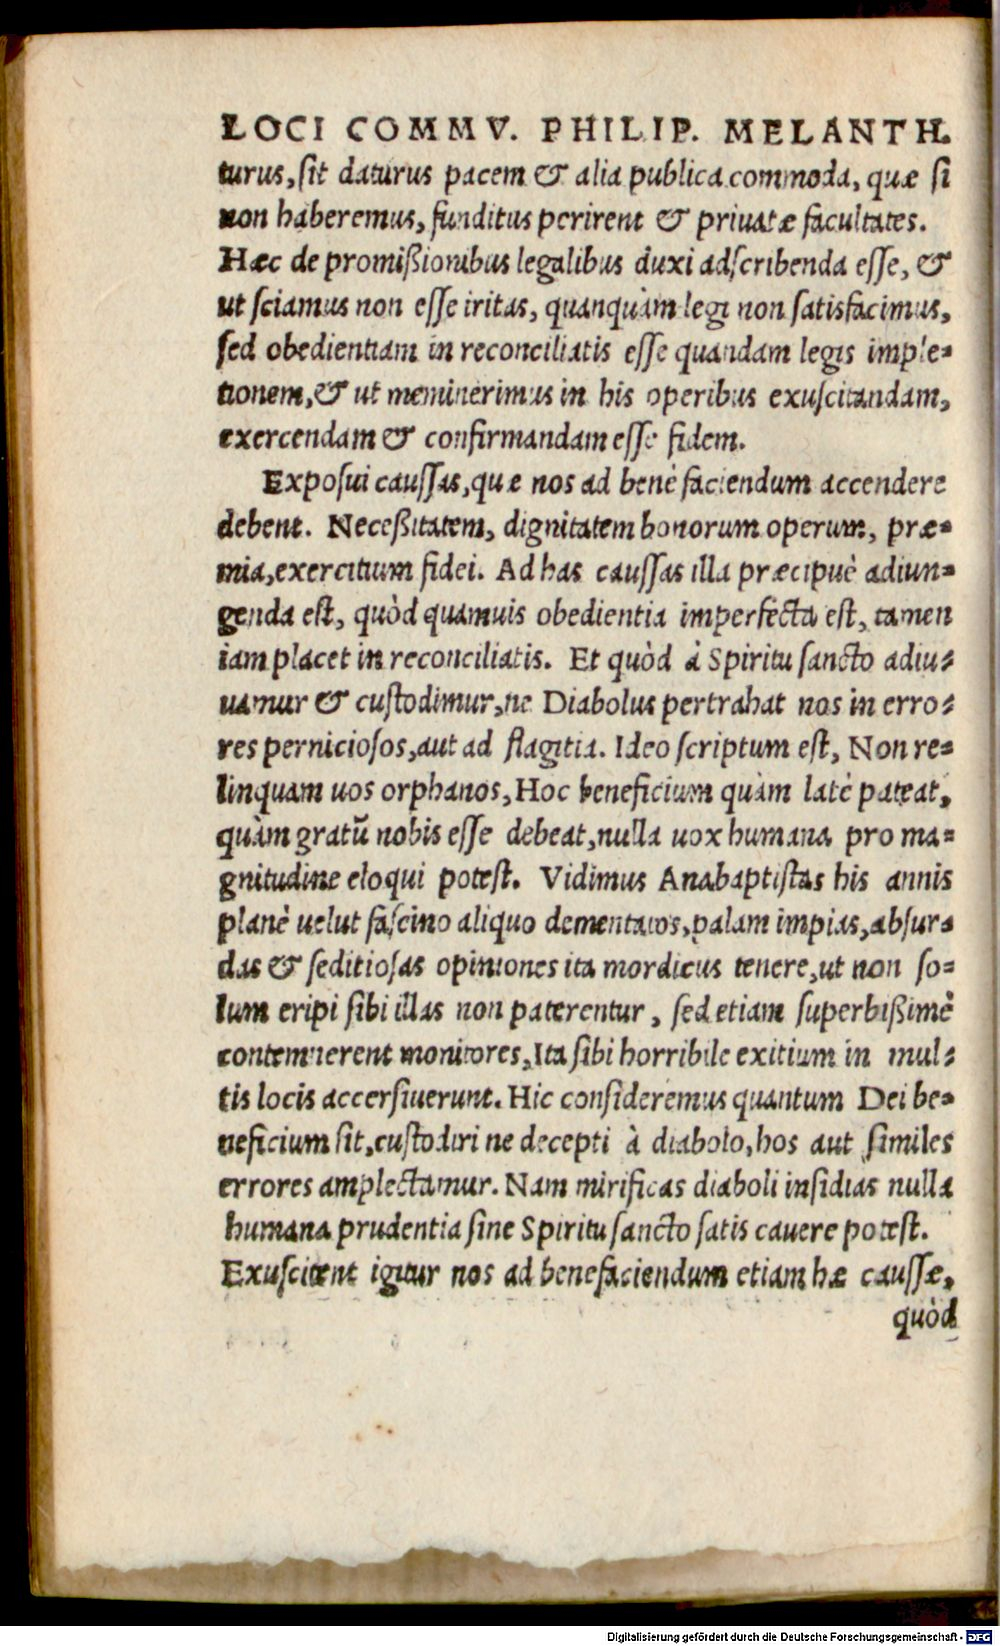 LOCI COMMV. PHILIP. MELANTH.
turus, sit daturus pacem & alia publica commoda, quæ si
non haberemus, funditus perirent & priuatæ facultates.
Hæc de promißionibus legalibus duxi adscribenda esse, &
ut sciamus non esse iritas, quanquàm legi non satisfacimus,
sed obedientiam in reconciliatis esse quandam legis imple-
tionem, & ut meminerimus in his operibus exuscitandam,
exercendam & confirmandam esse fidem.
Exposui caussas, quæ nos ad benè faciendum accendere
debent. Neceßitatem, dignitatem bonorum operum, præ-
mia, exercitium fidei. Ad has caussas illa præcipuè adiun-
genda est, quòd quamuis obedientia imperfecta est, tamen
iam placet in reconciliatis. Et quòd à Spiritu sancto adiu-
uamur & custodimur, ne Diabolus pertrahat nos in erro-
res perniciosos, aut ad flagitia. Ideo scriptum est, Non re-
linquam uos orphanos, Hoc beneficium quàm latè pateat,
quàm gratũ nobis esse debeat, nulla uox humana pro ma-
gnitudine eloqui potest. Vidimus Anabaptistas his annis
planè uelut fascino aliquo dementatos, palam impias, absur-
das & seditiosas opiniones ita mordicus tenere, ut non so-
lum eripi sibi illas non paterentur, sed etiam superbißimè
contemnerent monitores, Ita sibi horribile exitium in mul-
tis locis accersiuerunt. Hic consideremus quantum Dei be-
neficium sit, custodiri ne decepti à diabolo, hos aut similes
errores amplectamur. Nam mirificas diaboli insidias nulla
humana prudentia sine Spiritu sancto satis cauere potest.
Exuscitent igitur nos ad benefaciendum etiam hæ caussæ,
quòd
Digitalisierung gefördert durch die Deutsche Forschungsgemeinschaft - DFG